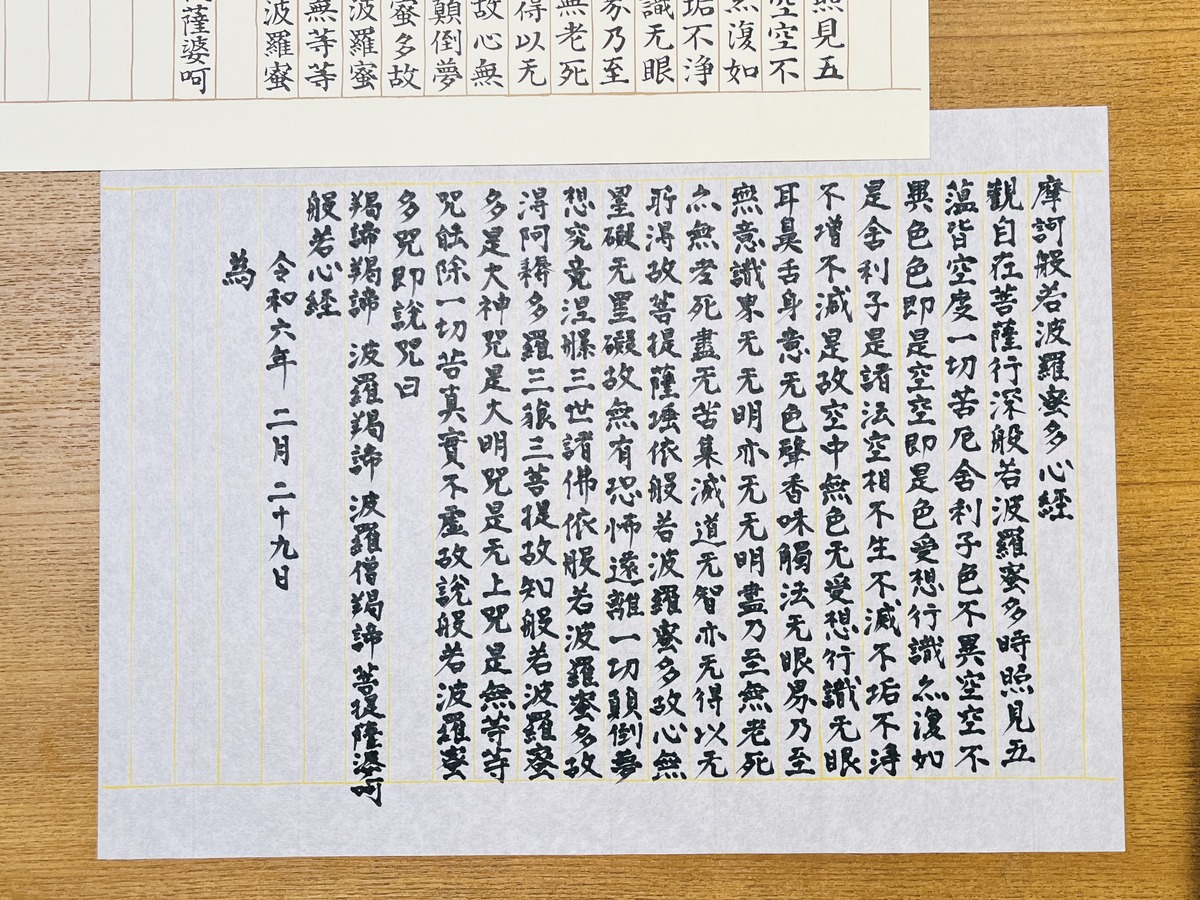 照見五
空空不
尒復如
垢不浄
識无眼
界乃至
無老死
得以无
故心無
顛倒夢
蜜多故
波羅蜜
無等等
波羅蜜
薩婆呵
摩訶般若波羅蜜多心経
觀自在菩薩行深般若波羅蜜多時照見五
蕰皆空度一切苦厄舍利子色不異空空不
異色色即是空空即是色受想行識尒復如
是舍利子是諸法空相不生不滅不垢不浄
不増不減是故空中無色无受想行識无眼
耳鼻舌身意无色聲香味觸法无眼界乃至
無意識界无无明亦无无明盡乃至無老死
尒無老死盡无苦集滅道无智亦无得以无
所得故菩提薩埵依般若波羅蜜多故心無
罣礙无罣礙故無有恐怖遠離一切顛倒夢
想究竟涅槃三世諸佛依般若波羅蜜多故
得阿耨多羅三藐三菩提故知般若波羅蜜
多是大神咒是大明咒是无上咒是無等等
咒能除一切苦真實不虛故說般若波羅蜜
多咒即說咒曰
羯諦羯諦 波羅羯諦 波羅僧羯諦 菩提薩婆呵
般若心経
令和六年 二月 二十九日
為